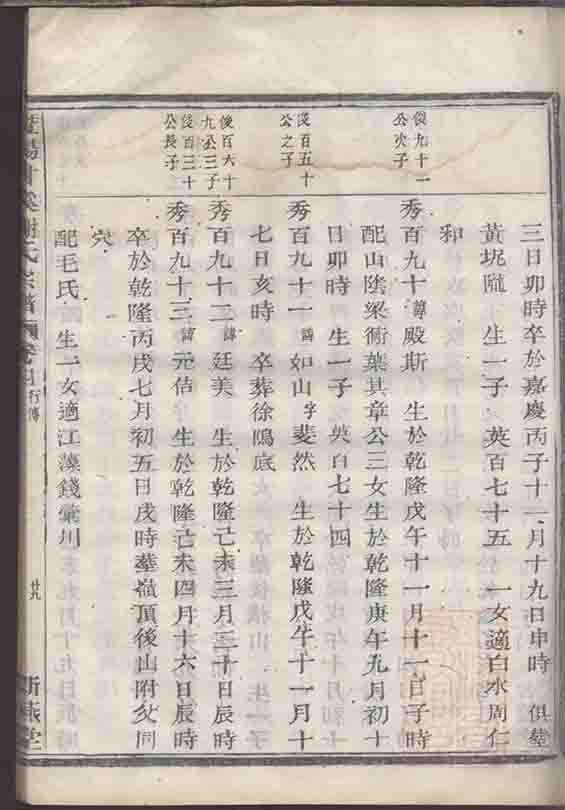 三日卯時卒於嘉慶丙子十一月十九日申時　俱墓
黃坭隴　生一子　英百七十五　一女適白水周仁
和
俊九十一
公次子
秀百九十　諱殿斯　生於乾隆戊午十一月十一日子時
配山陰梁衕葉其章公三女生於乾隆庚午九月初十
日卯時　生一子　英百七十四
俊百五十
公之子
秀百九十一　諱如山　字斐然　生於乾隆戊午十一月十
七日亥時　卒葬徐隖底
俊百六十
九公三子
秀百九十二　諱廷美　生於乾隆己未三月三十日辰時
俊百三十
公長子
秀百九十三　諱元佶　生於乾隆己未四月十六日辰時
卒於乾隆丙戌七月初五日戌時墓嶺頂後山附父同
穴
配毛氏　生一女適江藻錢彙川
氏宗譜　行傳　廿九